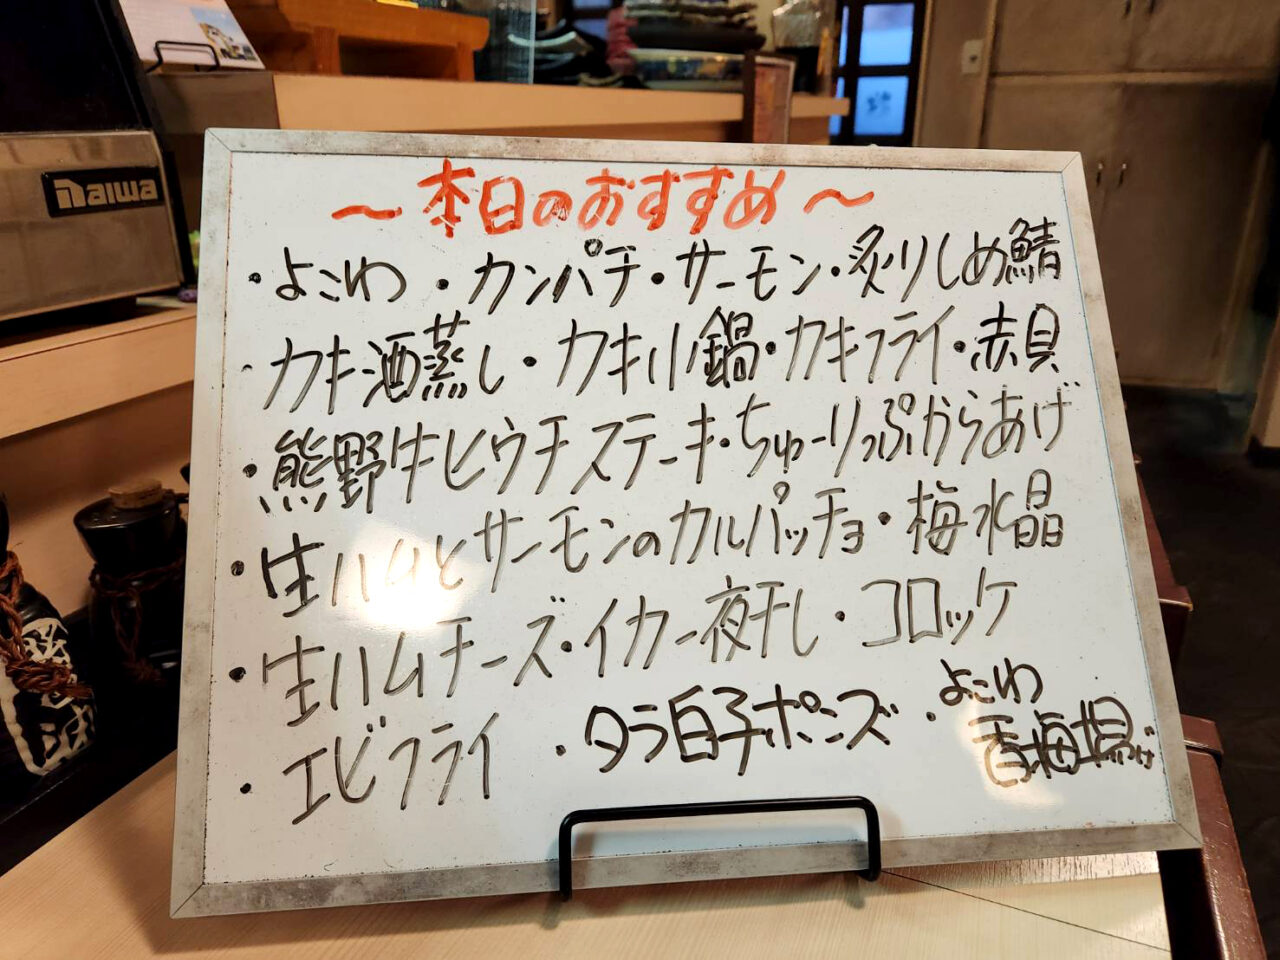 Daiwa
～本日のおすすめ～
・よこわ ・カンパチ・サーモン・炙りしめ鯖
・カキ酒蒸し・カキ小鍋・カキフライ・赤貝
・熊野牛ヒウチステーキ・ちゅーりっぷからあげ
・生ハムとサーモンのカルパッチョ・梅水晶
・生ハムチーズ・イカ一夜干し・コロッケ
・エビフライ ・タラ白子ポンズ ・よこわ
香梅塩